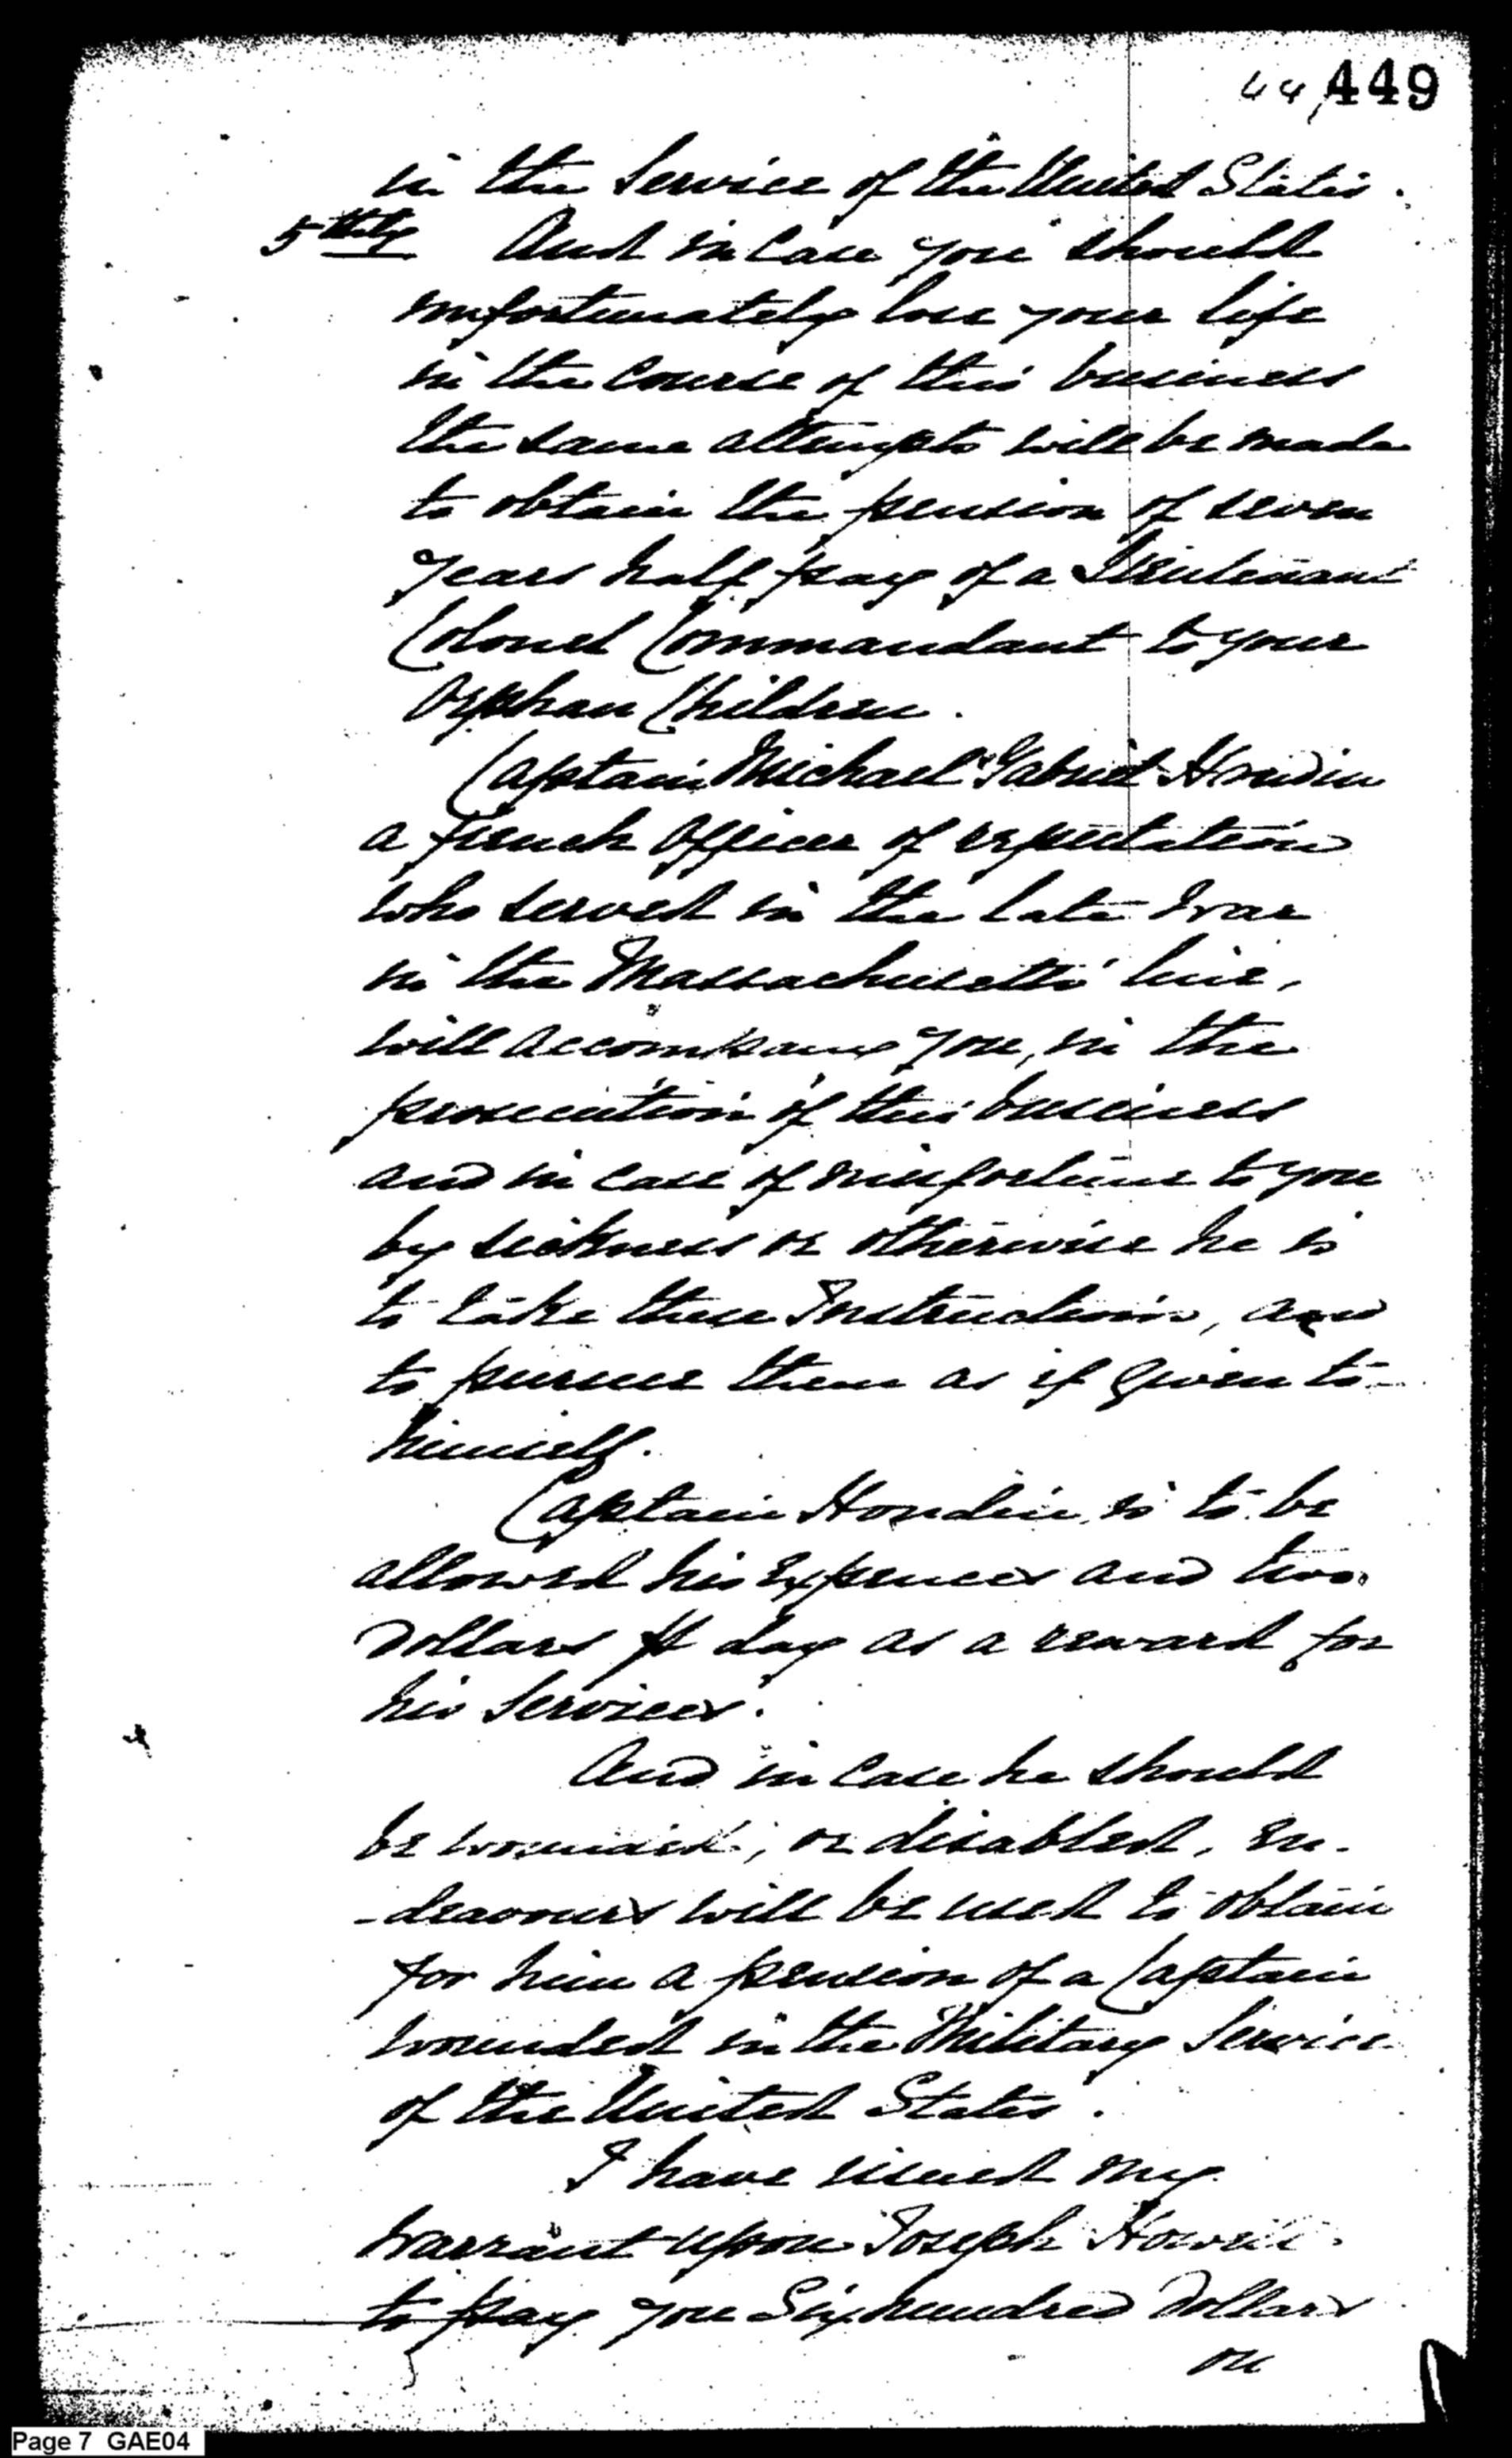 44, 449
in the Service of the United States.
5thly And in Case you should
unfortunately lose your life
in the Course of this business
the same attempts will be made
to obtain the pension of seven
Years half pay of a Lieutenant
Colonel Commandant to your
Orphan Children.
Captain Michael Gabriel Houdin
a french Officer of reputation
who served in the late War
in the Massachusetts line,
will accompany you, in the
prosecution of this business
and in case of misfortune to you
by sickness or otherwise he is
to take these Instructions, and
to pursue them as if given to
himself.
Captain Houdin is to be
allowed his Expences and two
Dollars ⅌ day as a reward for
his Services.
And in Case he should
be wounded, or disabled, en-
-deavours will be used to obtain
for him a pension of a Captain
wounded in the Military Service
of the United States.
I have issued my
Warrant upon Joseph Howell
to pay you Six hundred Dollars
on
Page 7 GAE04